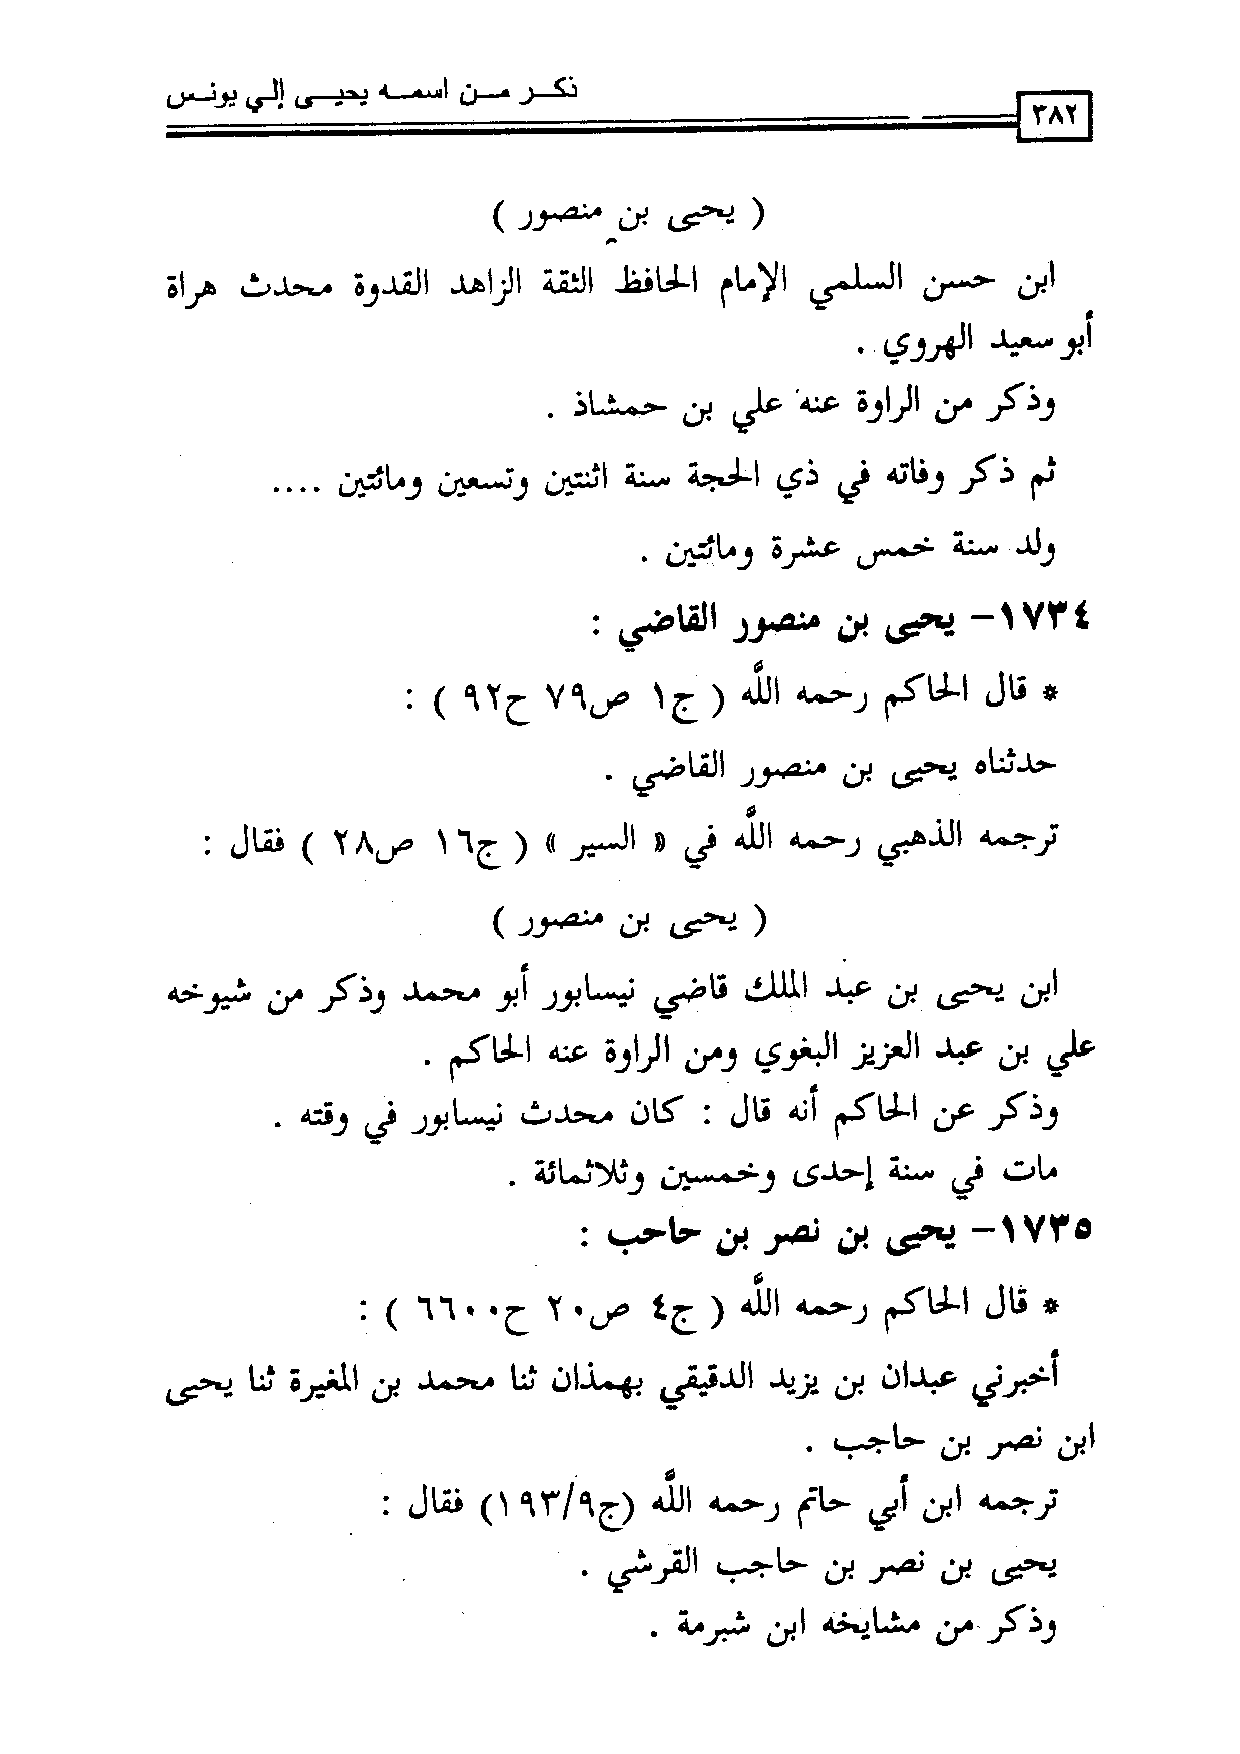 ذكر من اسمه يحيى إلي يونس
٣٨٢
( يحيى بن منصور )
ابن حسن السلمي الإمام الحافظ الثقة الزاهد القدوة محدث هراة
أبو سعيد الهروي .
وذكر من الراوة عنه علي بن حمشاذ .
ثم ذكر وفاته في ذي الحجة سنة اثنتين وتسعين ومائتين ....
ولد سنة خمس عشرة ومائتين .
١٧٣٤- يحيى بن منصور القاضي :
* قال الحاكم رحمه اللَّه ( ج١ ص٧٩ ح٩٢ ) :
حدثناه يحيى بن منصور القاضي .
ترجمه الذهبي رحمه اللَّه في « السير » ( ج١٦ ص٢٨ ) فقال :
( يحيى بن منصور )
ابن يحيى بن عبد الملك قاضي نيسابور أبو محمد وذكر من شيوخه
علي بن عبد العزيز البغوي ومن الراوة عنه الحاكم .
وذكر عن الحاكم أنه قال : كان محدث نيسابور في وقته .
مات في سنة إحدى وخمسين وثلاثمائة .
١٧٣٥- يحيى بن نصر بن حاحب :
* قال الحاكم رحمه اللَّه ( ج٤ ص٢٠ ح٦٦٠٠ ) :
أخبرني عبدان بن يزيد الدقيقي بهمذان ثنا محمد بن المغيرة ثنا يحيى
ابن نصر بن حاجب .
ترجمه ابن أبي حاتم رحمه اللَّه (ج٩/١٩٣) فقال :
يحيى بن نصر بن حاجب القرشي .
وذكر من مشايخه ابن شبرمة .